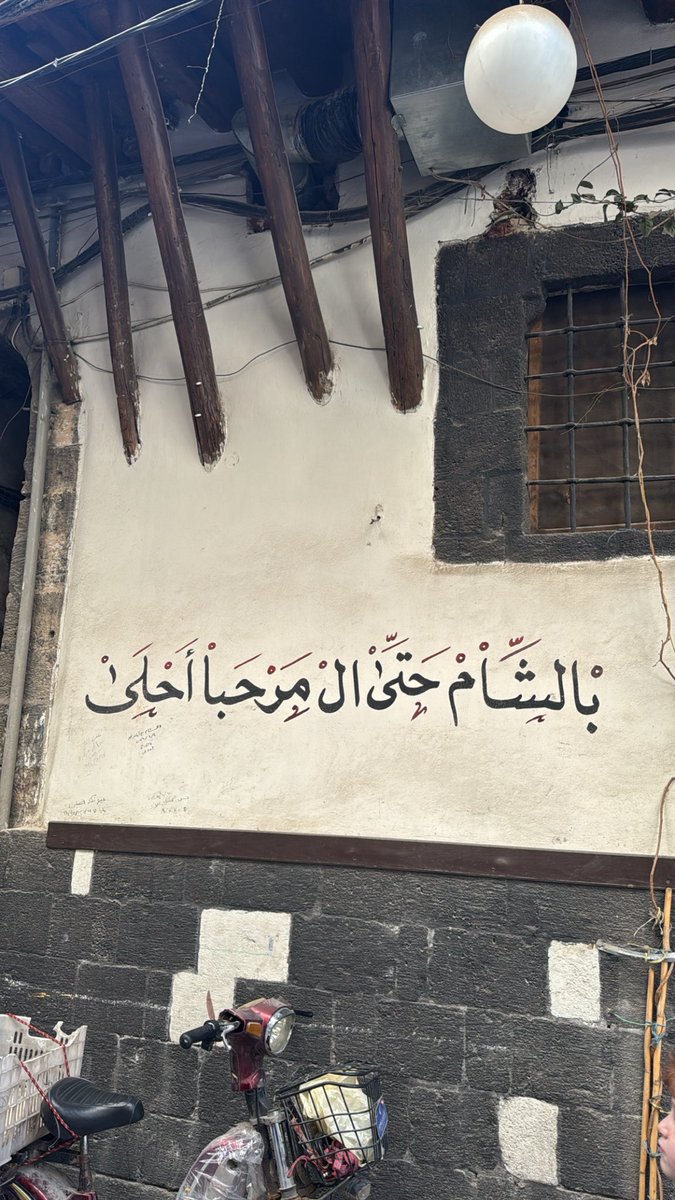 بِالشَّامْ حَتَّىٰ الْ مَرْحَبَاْ أَحْلَىٰ